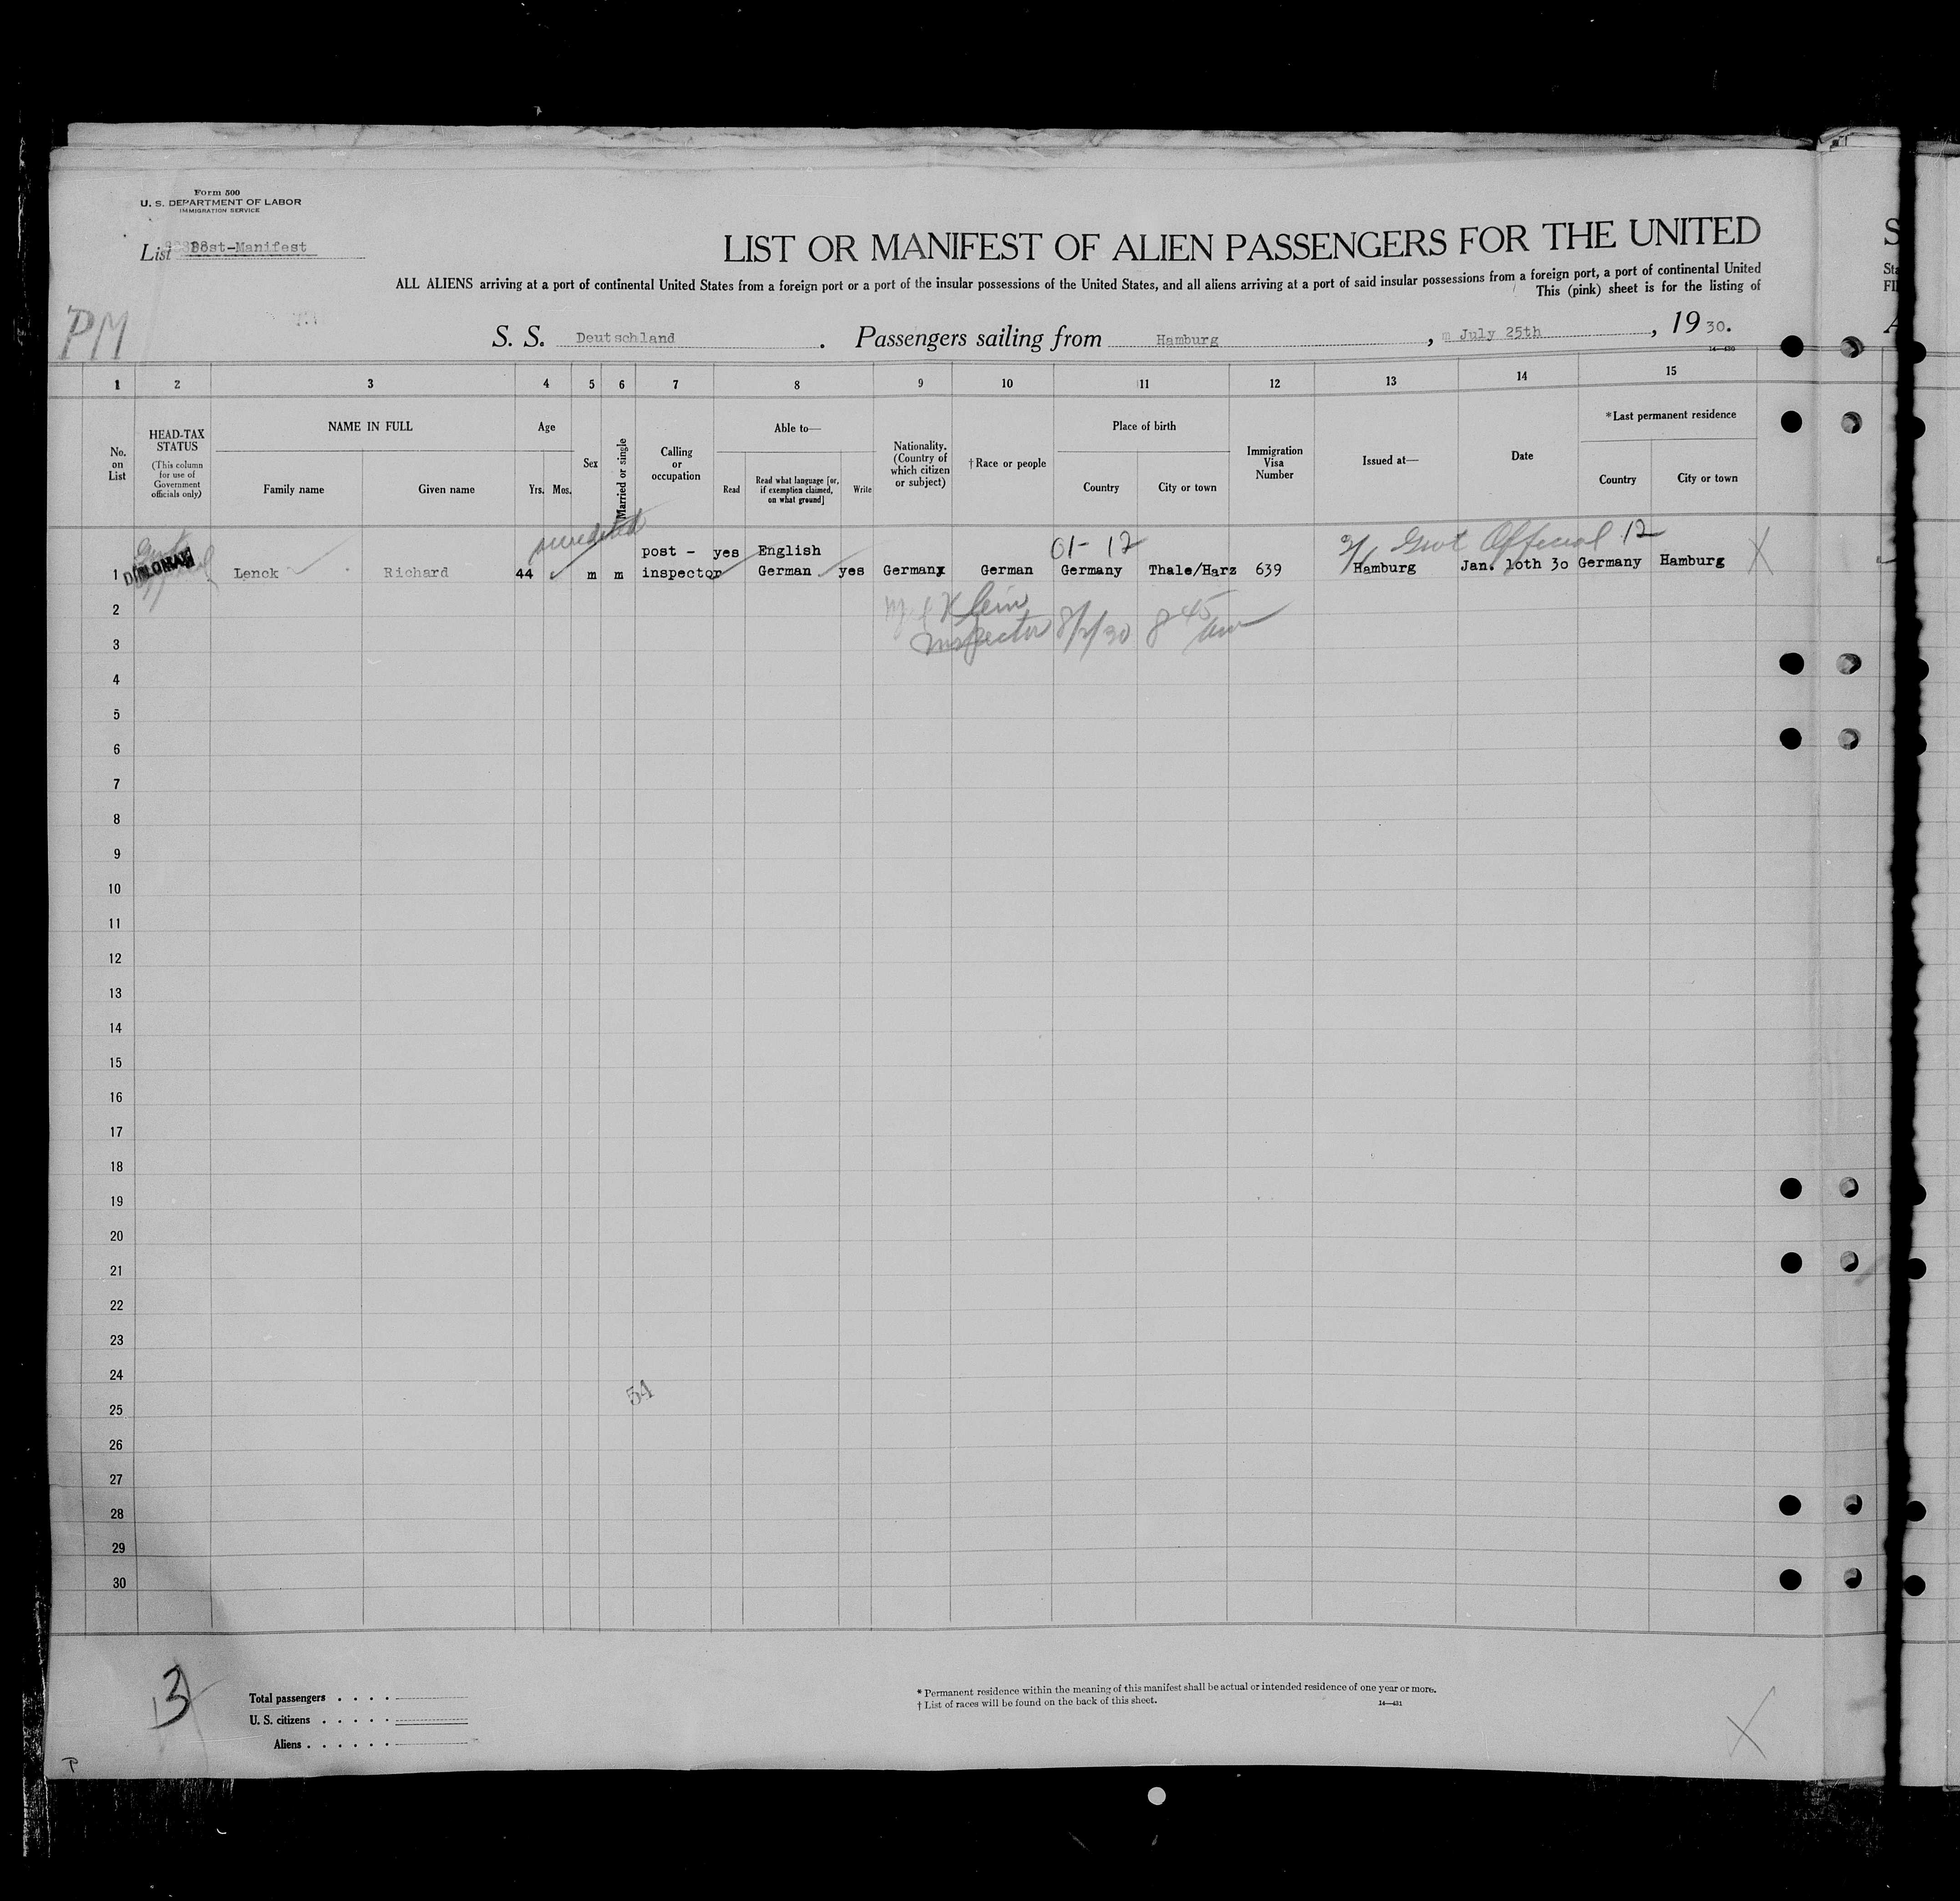 Form 500
U. S. DEPARTMENT OF LABOR
IMMIGRATION SERVICE
List Post-Manifest
LIST OR MANIFEST OF ALIEN PASSENGERS FOR THE UNITED
ALL ALIENS arriving at a port of continental United States from a foreign port or a port of the insular possessions of the United States, and all aliens arriving at a port of said insular possessions from a foreign port, a port of continental United
This (pink) sheet is for the listing of
PM
S. S. Deutschland . Passengers sailing from Hamburg , July 25th , 19 30.
14—430
1 2 3 4 5 6 7 8 9 10 11 12 13 14 15
No. on List
HEAD-TAX STATUS
(This column for use of Government officials only)
NAME IN FULL
Family name Given name
Age
Yrs. Mos.
Sex
Married or single
Calling or occupation
Able to—
Read
Read what language [or, if exemption claimed, on what ground]
Write
Nationality. (Country of which citizen or subject)
†Race or people
Place of birth
Country City or town
Immigration Visa Number
Issued at—
Date
*Last permanent residence
Country City or town
01- 12 Govt Official 12
post - yes English
1 DIPLOMAT Lenck Richard 44 m m inspector German yes Germany German Germany Thale/Harz 639 Hamburg Jan. 10th 30 Germany Hamburg X
2 Klein
3 Inspector 8/2/30 8 45 am
4
5
6
7
8
9
10
11
12
13
14
15
16
17
18
19
20
21
22
23
24
54
25
26
27
28
29
30
3
Total passengers . . . .
U. S. citizens . . . . .
Aliens . . . . . .
* Permanent residence within the meaning of this manifest shall be actual or intended residence of one year or more.
† List of races will be found on the back of this sheet.
14—431
X